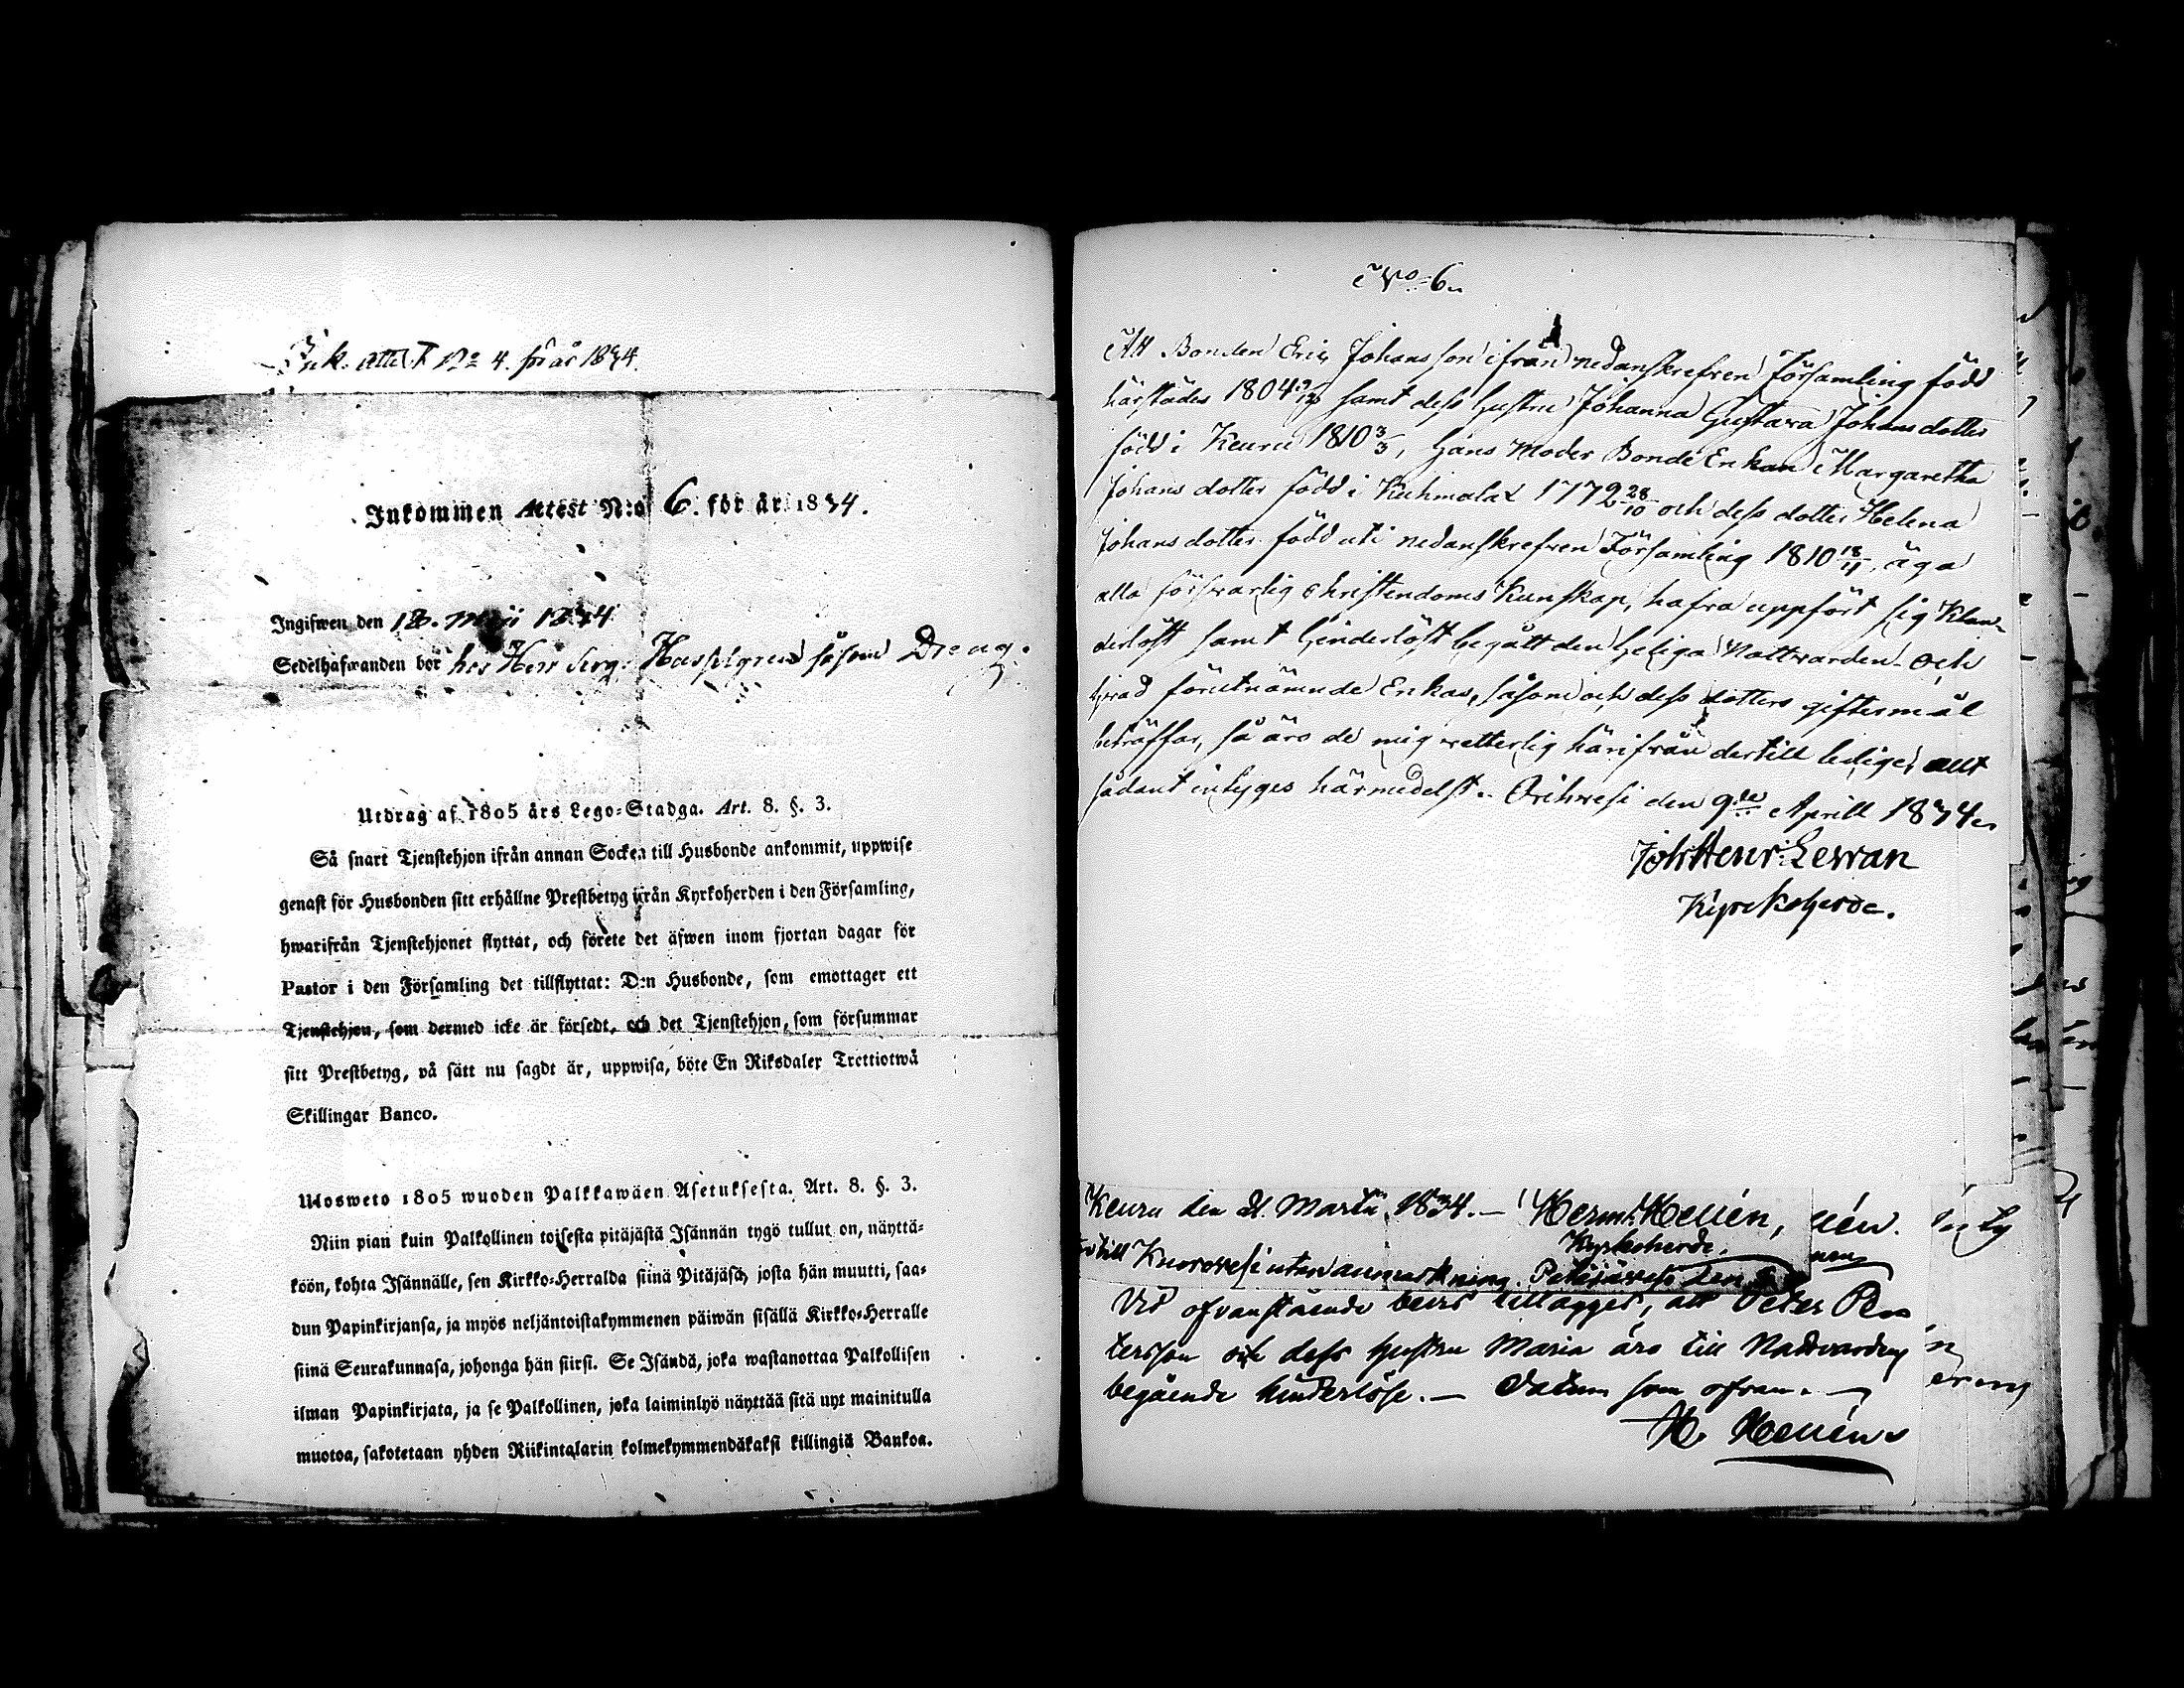 Ink. Attest No 4. för år 1834.
Inkommen Attest N:o 6. för år 1834.
Ingifwen den 18. Maji 1834
Sedelhafwanden bor hos Herr Serg: Hasselgren såsom Dreng.
Utdrag af 1805 års Lego-Stadga. Art. 8. §. 3.
Så snart Tjenstehjon ifrån annan Socken till Husbonde ankommit, uppwise
genast för Husbonden sitt erhållne Prestbetyg ifrån Kyrkoherden i den Församling,
hwarifrån Tjenstehjonet flyttat, och förete det äfwen inom fjortan dagar för
Pastor i den Församling det tillflyttat: Den Husbonde, som emottager ett
Tjenstehjon, som dermed icke är försedt, och det Tjenstehjon, som försummar
sitt Prestbetyg, på sätt nu sagdt är, uppwisa, böte En Riksdaler Trettiotwå
Skillingar Banco.
Ulosweto 1805 wuoden Palkkawäen Asetuksesta. Art. 8. §. 3.
Niin pian kuin Palkollinen toisesta pitäjästä Isännän tygö tullut on, näyttä-
köön, kohta Isännälle, sen Kirkko-Herralda siinä Pitäjäsä, josta hän muutti, saa-
dun Papinkirjansa, ja myös neljäntoistakymmenen päiwän sisällä Kirkko-Herralle
siinä Seurakunnasa, johonga hän siirsi. Se Isändä, joka wastanottaa Palkollisen
ilman Papinkirjata, ja se Palkollinen, joka laiminlyö näyttää sitä nyt mainitulla
muotoa, sakotetaan yhden Riikintalarin kolmekymmendäkaksi killingiä Bankoa.
No 6.
Att Bonden Eric Johansson ifrån nedanskrefven Församling född
härstädes 1804 samt dess hustru Johanna Gustava Johansdotter
född i Keuru 1810 3/3, hans Moder Bonde Enkan Margaretha
Johansdotter född i Kuhmalax 1772 28/10 och dess dotter Helena
Johansdotter född uti nedanskrefven Församling 1810 18/11, äga
alla försvarlig christendoms Kunskap, hafva uppfört sig Klan-
derlöst samt hinderlöst begått den heliga Nattwarden och
hvad förutnämnde Enkas, såsom och dess dotters giftermål
beträffar, så äro de mig vetterlig härifrån dertill lediga; allt
sådant intyges härmedelst. Orihvesi den 9de Aprill 1834.
Joh Henr: Levvan
Kyrckoherde.
Keuru den 21. Martii 1834. — Herm. Hellén,
Kyrkoherde.
till Kuorevesi utan anmärkning. Petäjävesi den
Vid ofvanstående bevis tillägges, att Peter Pe-
tersson och dess hustru Maria äro till Nattvardens
begående hinderlöse. — Datum som ofvan. —
H. Hellén